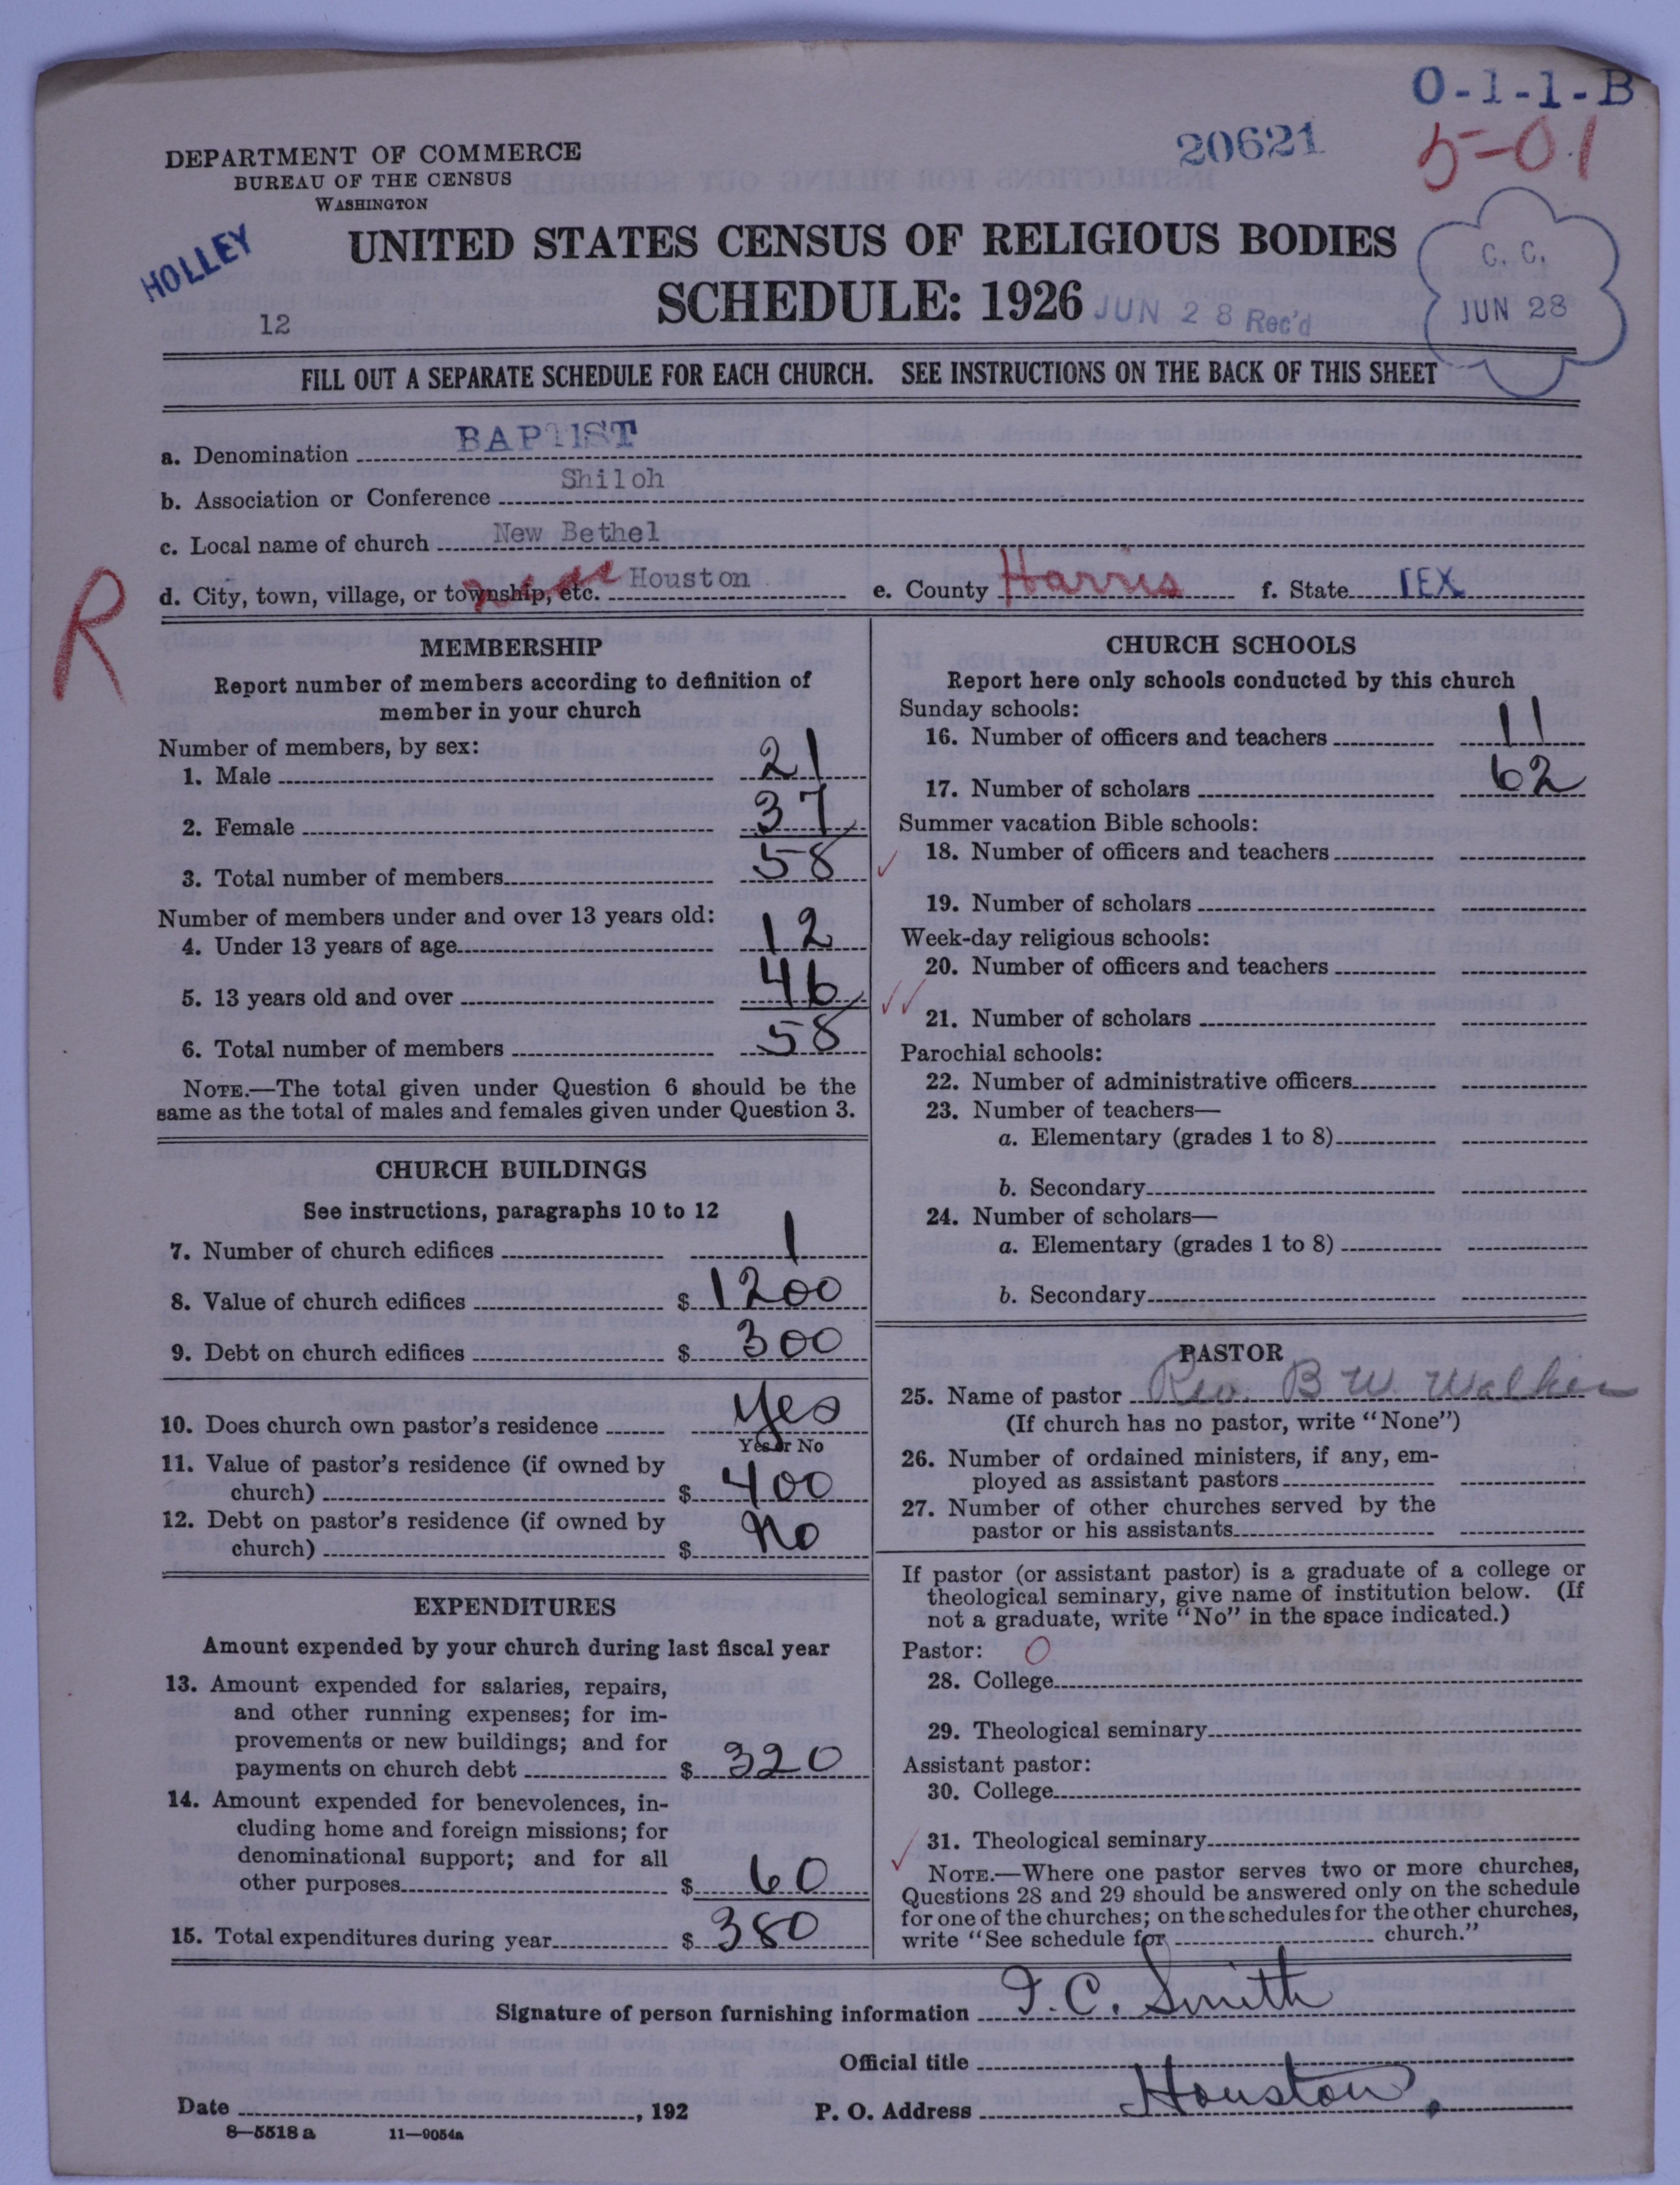 O-1-1-B
20621
5-01
DEPARTMENT OF COMMERCE
BUREAU OF THE CENSUS
WASHINGTON
HOLLEY
UNITED STATES CENSUS OF RELIGIOUS BODIES
SCHEDULE: 1926
JUN 28 Rec'd
C. C.
JUN 28
12
FILL OUT A SEPARATE SCHEDULE FOR EACH CHURCH. SEE INSTRUCTIONS ON THE BACK OF THIS SHEET
a. Denomination BAPTIST
b. Association or Conference Shiloh
c. Local name of church New Bethel
d. City, town, village, or township, etc. near Houston e. County Harris f. State TEX
R
MEMBERSHIP
Report number of members according to definition of
member in your church
Number of members, by sex:
1. Male 21
2. Female 37
3. Total number of members 58
Number of members under and over 13 years old:
4. Under 13 years of age 12
5. 13 years old and over 46
6. Total number of members 58
NOTE.—The total given under Question 6 should be the
same as the total of males and females given under Question 3.
CHURCH BUILDINGS
See instructions, paragraphs 10 to 12
7. Number of church edifices 1
8. Value of church edifices $ 1200
9. Debt on church edifices $ 300
10. Does church own pastor's residence Yes
Yes or No
11. Value of pastor's residence (if owned by
church) $ 400
12. Debt on pastor's residence (if owned by
church) $ No
EXPENDITURES
Amount expended by your church during last fiscal year
13. Amount expended for salaries, repairs,
and other running expenses; for im-
provements or new buildings; and for
payments on church debt $ 320
14. Amount expended for benevolences, in-
cluding home and foreign missions; for
denominational support; and for all
other purposes $ 60
15. Total expenditures during year $ 380
CHURCH SCHOOLS
Report here only schools conducted by this church
Sunday schools:
16. Number of officers and teachers 11
17. Number of scholars 62
Summer vacation Bible schools:
18. Number of officers and teachers
19. Number of scholars
Week-day religious schools:
20. Number of officers and teachers
21. Number of scholars
Parochial schools:
22. Number of administrative officers
23. Number of teachers—
a. Elementary (grades 1 to 8)
b. Secondary
24. Number of scholars—
a. Elementary (grades 1 to 8)
b. Secondary
PASTOR
25. Name of pastor Rev B W Walker
(If church has no pastor, write "None")
26. Number of ordained ministers, if any, em-
ployed as assistant pastors
27. Number of other churches served by the
pastor or his assistants
If pastor (or assistant pastor) is a graduate of a college or
theological seminary, give name of institution below. (If
not a graduate, write "No" in the space indicated.)
Pastor: O
28. College
29. Theological seminary
Assistant pastor:
30. College
31. Theological seminary
NOTE.—Where one pastor serves two or more churches,
Questions 28 and 29 should be answered only on the schedule
for one of the churches; on the schedules for the other churches,
write "See schedule for church."
Signature of person furnishing information I. C. Smith
Official title
Date , 192 P. O. Address Houston.
8—5518 a 11—9054a